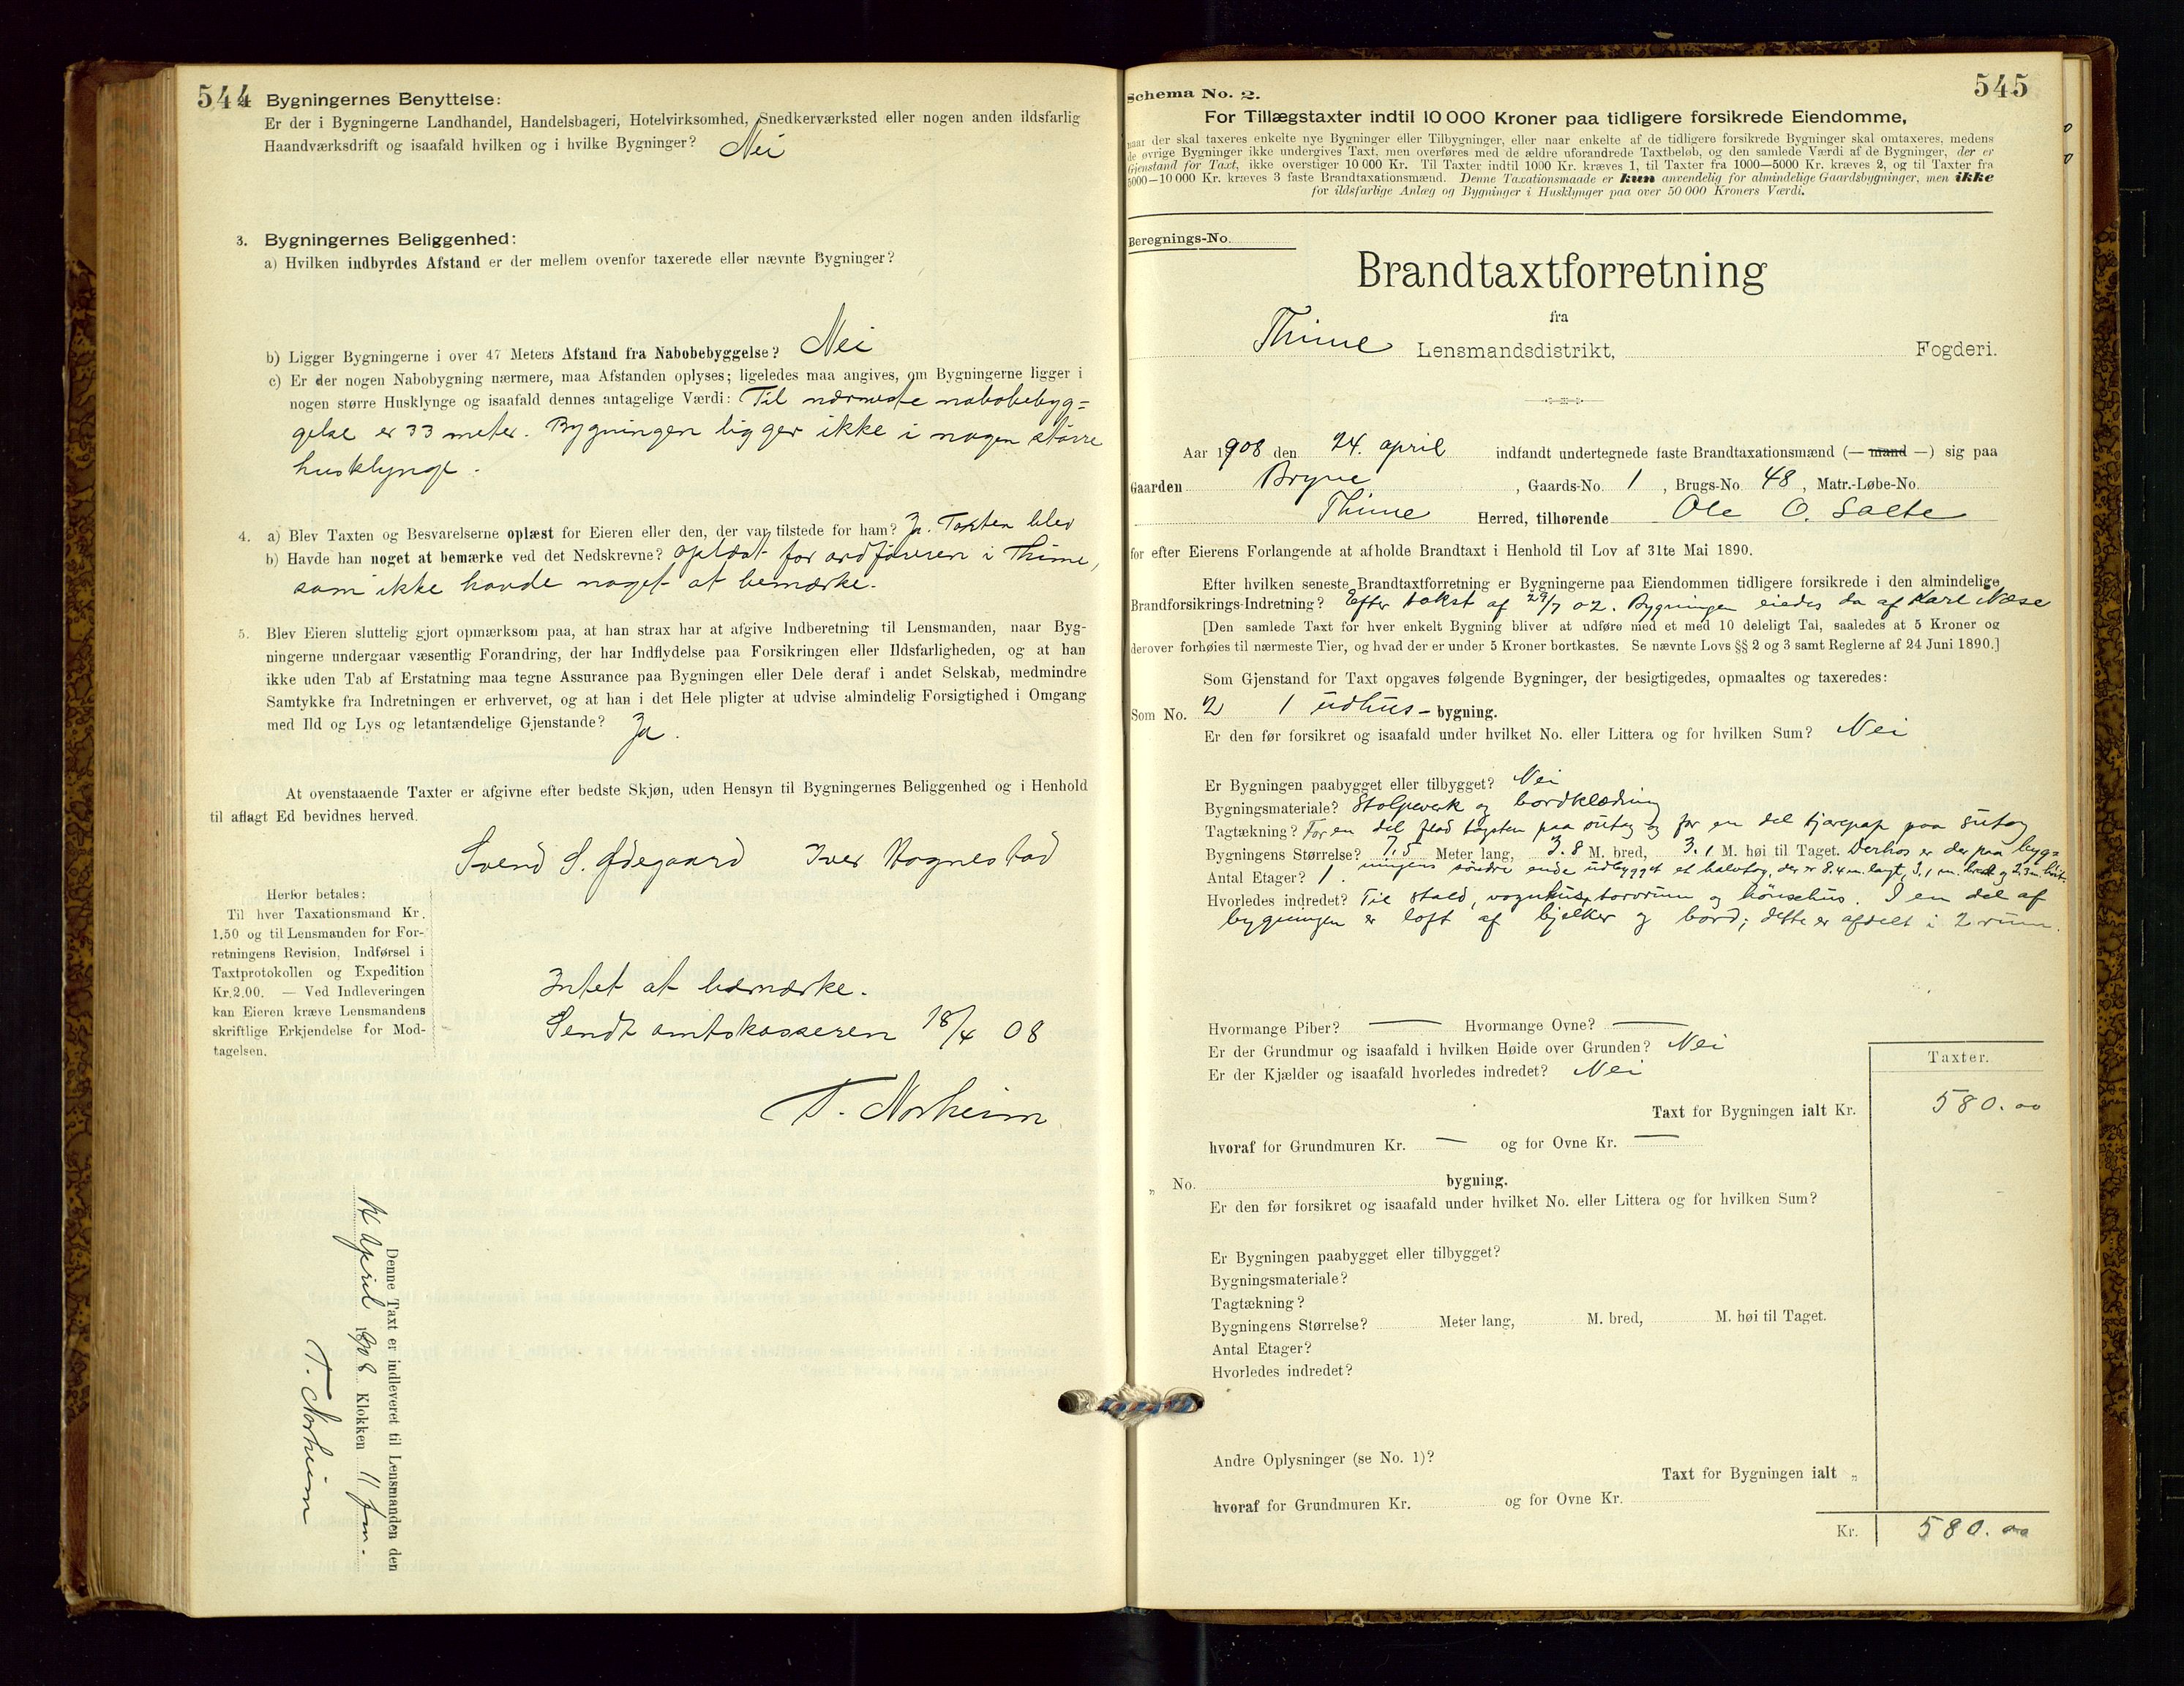 544
Bygningernes Benyttelse:
Er der i Bygningerne Landhandel, Handelsbageri, Hotelvirksomhed, Snedkerværksted eller nogen anden ildsfarlig
Haandværksdrift og isaafald hvilken og i hvilke Bygninger? Nei
3. Bygningernes Beliggenhed:
a) Hvilken indbyrdes Afstand er der mellem ovenfor taxerede eller nævnte Bygninger?
b) Ligger Bygningerne i over 47 Meters Afstand fra Nabobebyggelse? Nei
c) Er der nogen Nabobygning nærmere, maa Afstanden oplyses; ligeledes maa angives, om Bygningerne ligger i
nogen større Husklynge og isaafald dennes antagelige Værdi: Til nærmeste nabobebyg=
gelse er 33 meter. Bygningen ligger ikke i nogen større
husklynge.
4. a) Blev Taxten og Besvarelserne oplæst for Eieren eller den, der var tilstede for ham? Ja. Taxten blev
b) Havde han noget at bemærke ved det Nedskrevne? oplæst for ordføreren i Thime,
som ikke havde noget at bemærke.
5. Blev Eieren sluttelig gjort opmærksom paa, at han strax har at afgive Indberetning til Lensmanden, naar Byg-
ningerne undergaar væsentlig Forandring, der har Indflydelse paa Forsikringen eller Ildsfarligheden, og at han
ikke uden Tab af Erstatning maa tegne Assurance paa Bygningen eller Dele deraf i andet Selskab, medmindre
Samtykke fra Indretningen er erhvervet, og at han i det Hele pligter at udvise almindelig Forsigtighed i Omgang
med Ild og Lys og letantændelige Gjenstande? Ja.
At ovenstaaende Taxter er afgivne efter bedste Skjøn, uden Hensyn til Bygningernes Beliggenhed og i Henhold
til aflagt Ed bevidnes herved.
Svend S. Ødegaard Iver Hognestad
Herfor betales:
Til hver Taxationsmand Kr.
1.50 og til Lensmanden for For-
retningens Revision, Indførsel i
Taxtprotokollen og Expedition
Kr. 2.00. — Ved Indleveringen
kan Eieren kræve Lensmandens
skriftlige Erkjendelse for Mod-
tagelsen.
Intet at bemærke.
Sendt amtskasseren 18/4 08
T. Norheim
Denne Taxt er indleveret til Lensmanden den
April 1908 Klokken 11 fm.
T. Norheim
545
Schema No. 2.
For Tillægstaxter indtil 10 000 Kroner paa tidligere forsikrede Eiendomme,
naar der skal taxeres enkelte nye Bygninger eller Tilbygninger, eller naar enkelte af de tidligere forsikrede Bygninger skal omtaxeres, medens
de øvrige Bygninger ikke undergives Taxt, men overføres med de ældre uforandrede Taxtbeløb, og den samlede Værdi af de Bygninger, der er
Gjenstand for Taxt, ikke overstiger 10 000 Kr. Til Taxter indtil 1000 Kr. kræves 1, til Taxter fra 1000—5000 Kr. kræves 2, og til Taxter fra
5000—10 000 Kr. kræves 3 faste Brandtaxationsmænd. Denne Taxationsmaade er kun anvendelig for almindelige Gaardsbygninger, men ikke
for ildsfarlige Anlæg og Bygninger i Husklynger paa over 50 000 Kroners Værdi.
Beregnings-No.
Brandtaxtforretning
fra
Thime Lensmandsdistrikt, Fogderi.
Aar 1908 den 24. april indfandt undertegnede faste Brandtaxationsmænd (— mand —) sig paa
Gaarden Bryne, Gaards-No. 1, Brugs-No. 48, Matr.-Løbe-No.
Thime Herred, tilhørende Ole O. Salte
for efter Eierens Forlangende at afholde Brandtaxt i Henhold til Lov af 31te Mai 1890.
Efter hvilken seneste Brandtaxtforretning er Bygningerne paa Eiendommen tidligere forsikrede i den almindelige
Brandforsikrings-Indretning? Efter takst af 29/7 02. Bygningen eiedes da af Karl Næse
[Den samlede Taxt for hver enkelt Bygning bliver at udføre med et med 10 deleligt Tal, saaledes at 5 Kroner og
derover forhøies til nærmeste Tier, og hvad der er under 5 Kroner bortkastes. Se nævnte Lovs §§ 2 og 3 samt Reglerne af 24 Juni 1890.]
Som Gjenstand for Taxt opgaves følgende Bygninger, der besigtigedes, opmaaltes og taxeredes:
Som No. 2 1 udhus- bygning.
Er den før forsikret og isaafald under hvilket No. eller Littera og for hvilken Sum? Nei
Er Bygningen paabygget eller tilbygget? Nei
Bygningsmateriale? Stolpeverk og bordklædning
Tagtækning? For en del flad tagsten paa sutag og for en del tjærepap paa sutag
Bygningens Størrelse? 7.5 Meter lang, 3.8 M. bred, 3.1 M. høi til Taget. Derhos er der paa byg=
Antal Etager? 1. ningens søndre ende udbygget et halvtag, der er 8.4 m. langt, 3.1 m. bredt og 2.3 m. høit.
Hvorledes indredet? Til stald, vognhus, torvrum og hönsehus. I en del af
bygningen er loft af bjelker og bord; dette er afdelt i 2 rum.
Hvormange Piber? — Hvormange Ovne? —
Er der Grundmur og isaafald i hvilken Høide over Grunden? Nei
Er der Kjælder og isaafald hvorledes indredet? Nei
Taxter.
Taxt for Bygningen ialt Kr. 580.00
hvoraf for Grundmuren Kr. — og for Ovne Kr. —
„ No. bygning.
Er den før forsikret og isaafald under hvilket No. eller Littera og for hvilken Sum?
Er Bygningen paabygget eller tilbygget?
Bygningsmateriale?
Tagtækning?
Bygningens Størrelse? Meter lang, M. bred, M. høi til Taget.
Antal Etager?
Hvorledes indredet?
Andre Oplysninger (se No. 1)?
Taxt for Bygningen ialt „
hvoraf for Grundmuren Kr. og for Ovne Kr.
Kr. 580.00